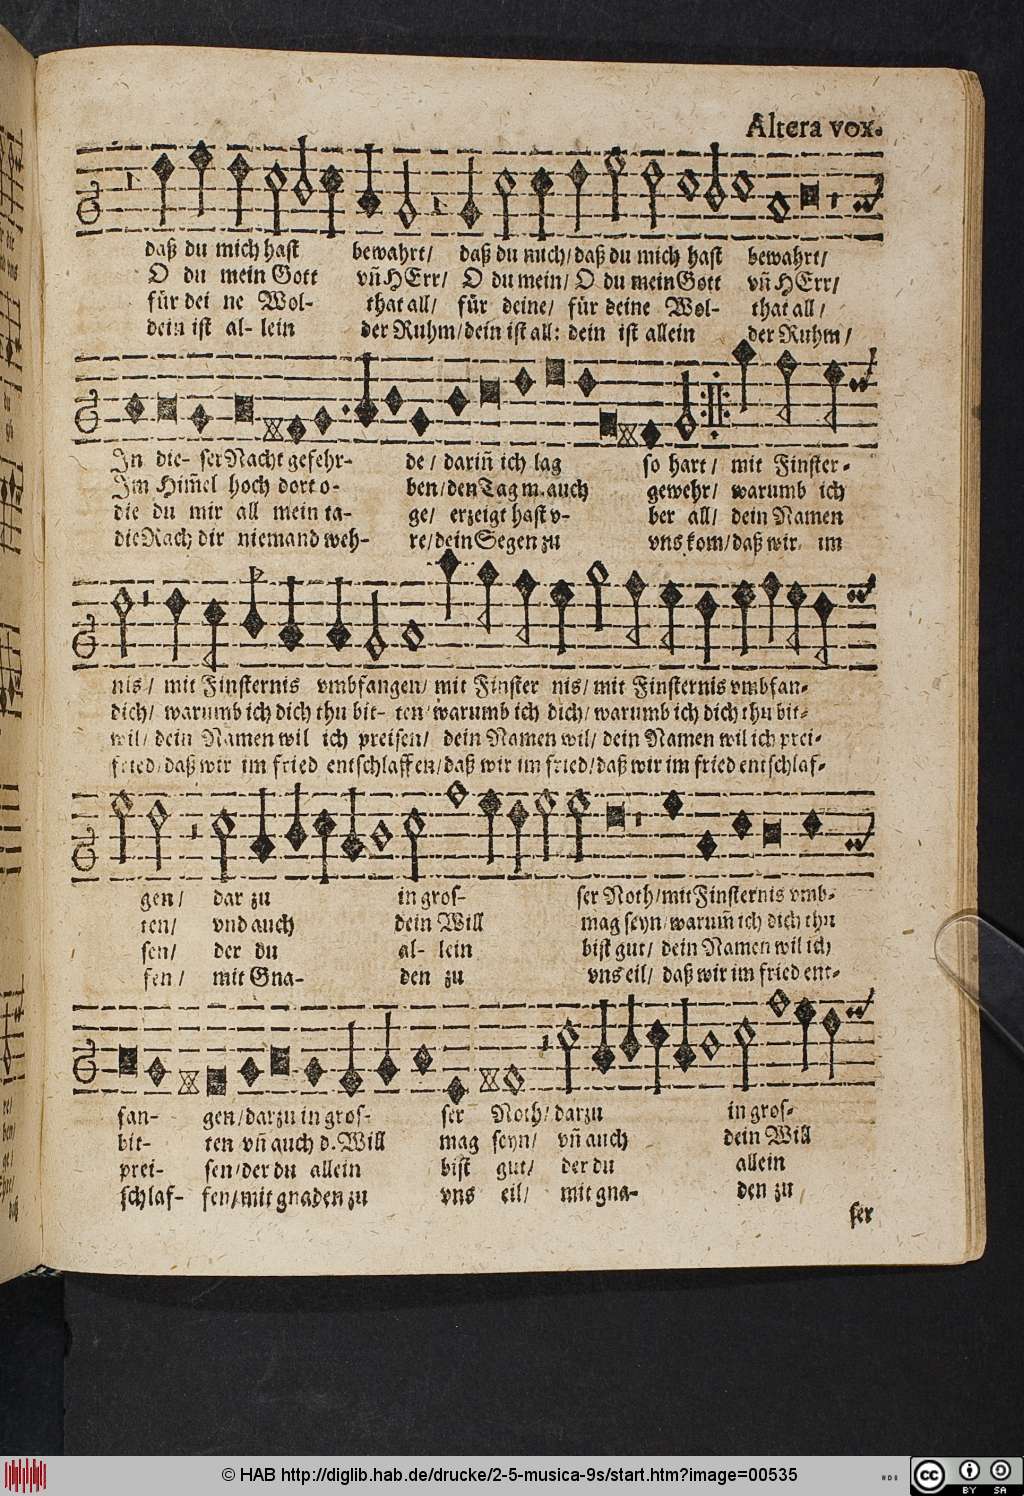 Altera vox.
daß du mich hast bewahrt/ daß du mich/ daß du mich hast bewahrt/
O du mein Gott vñ HErr/ O du mein/ O du mein Gott vñ HErr/
für dei ne Wol- that all/ für deine/ für deine Wol- that all/
dein ist al- lein der Ruhm/ dein ist all: dein ist allein der Ruhm/
In die- ser Nacht gefehr- de/ dariñ ich lag so hart/ mit Finster-
Im Him̃el hoch dort o- ben/ den Tag m. auch gewehr/ warumb ich
die du mir all mein ta- ge/ erzeigt hast v- ber all/ dein Namen
die Rach dir niemand weh- re/ dein Segen zu vns kom/ daß wir im
nis/ mit Finsternis vmbfangen/ mit Finster nis/ mit Finsternis vmbfan-
dich/ warumb ich dich thu bit- ten/ warumb ich dich/ warumb ich dich thu bit-
wil/ dein Namen wil ich preisen/ dein Namen wil/ dein Namen wil ich prei-
fried/ daß wir im fried entschlaffen/ daß wir im fried/ daß wir im fried entschlaf-
gen/ dar zu in gros- ser Noth/ mit Finsternis vmb-
ten/ vnd auch dein Will mag seyn/ warum̃ ich dich thu
sen/ der du al- lein bist gut/ dein Namen wil ich
fen/ mit Gna- den zu vns eil/ daß wir im fried ent-
fan- gen/ darzu in gros- ser Noth/ darzu in gros-
bit- ten vñ auch d. Will mag seyn/ vñ auch dein Will
prei- sen/ der du allein bist gut/ der du allein
schlaf- fen/ mit gnaden zu vns eil/ mit gna- den zu
ser
© HAB http://diglib.hab.de/drucke/2-5-musica-9s/start.htm?image=00535
cc BY SA